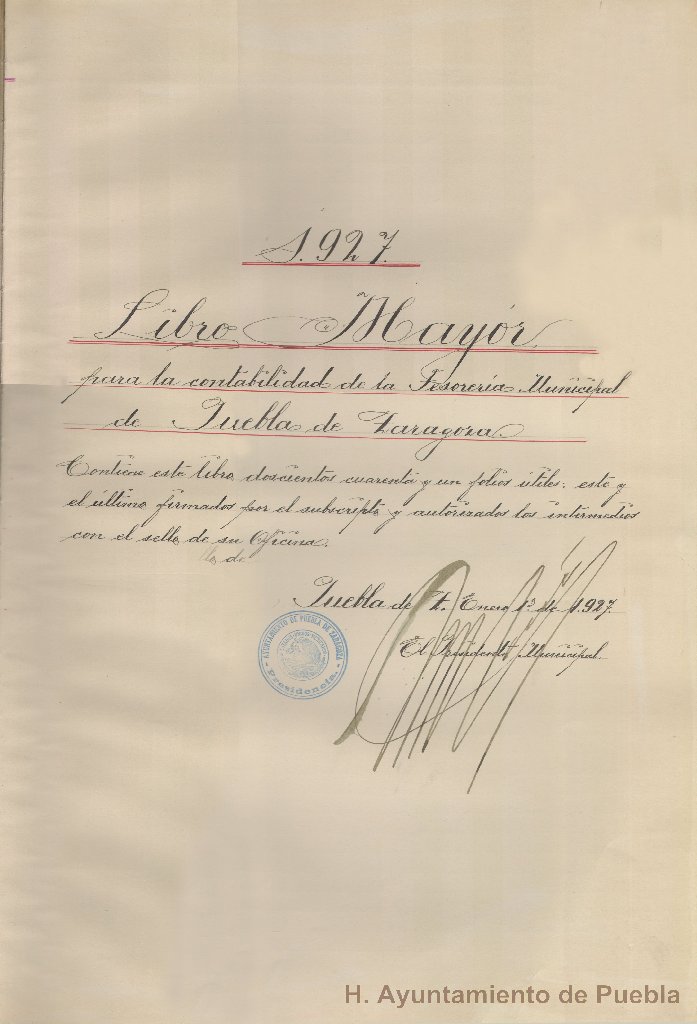 1.927.
Libro Mayór
para la contabilidad de la Tesorería Municipal
de Puebla de Zaragoza.
Contiene este libro doscientos cuarenta y un folios útiles; este y
el último firmados por el subscripto y autorizados los intermedios
con el sello de su Oficina.
Puebla de Z. Enero 1º de 1.927.
El Presidente Municipal.
AYUNTAMIENTO DE PUEBLA DE ZARAGOZA
Presidencia.
H. Ayuntamiento de Puebla